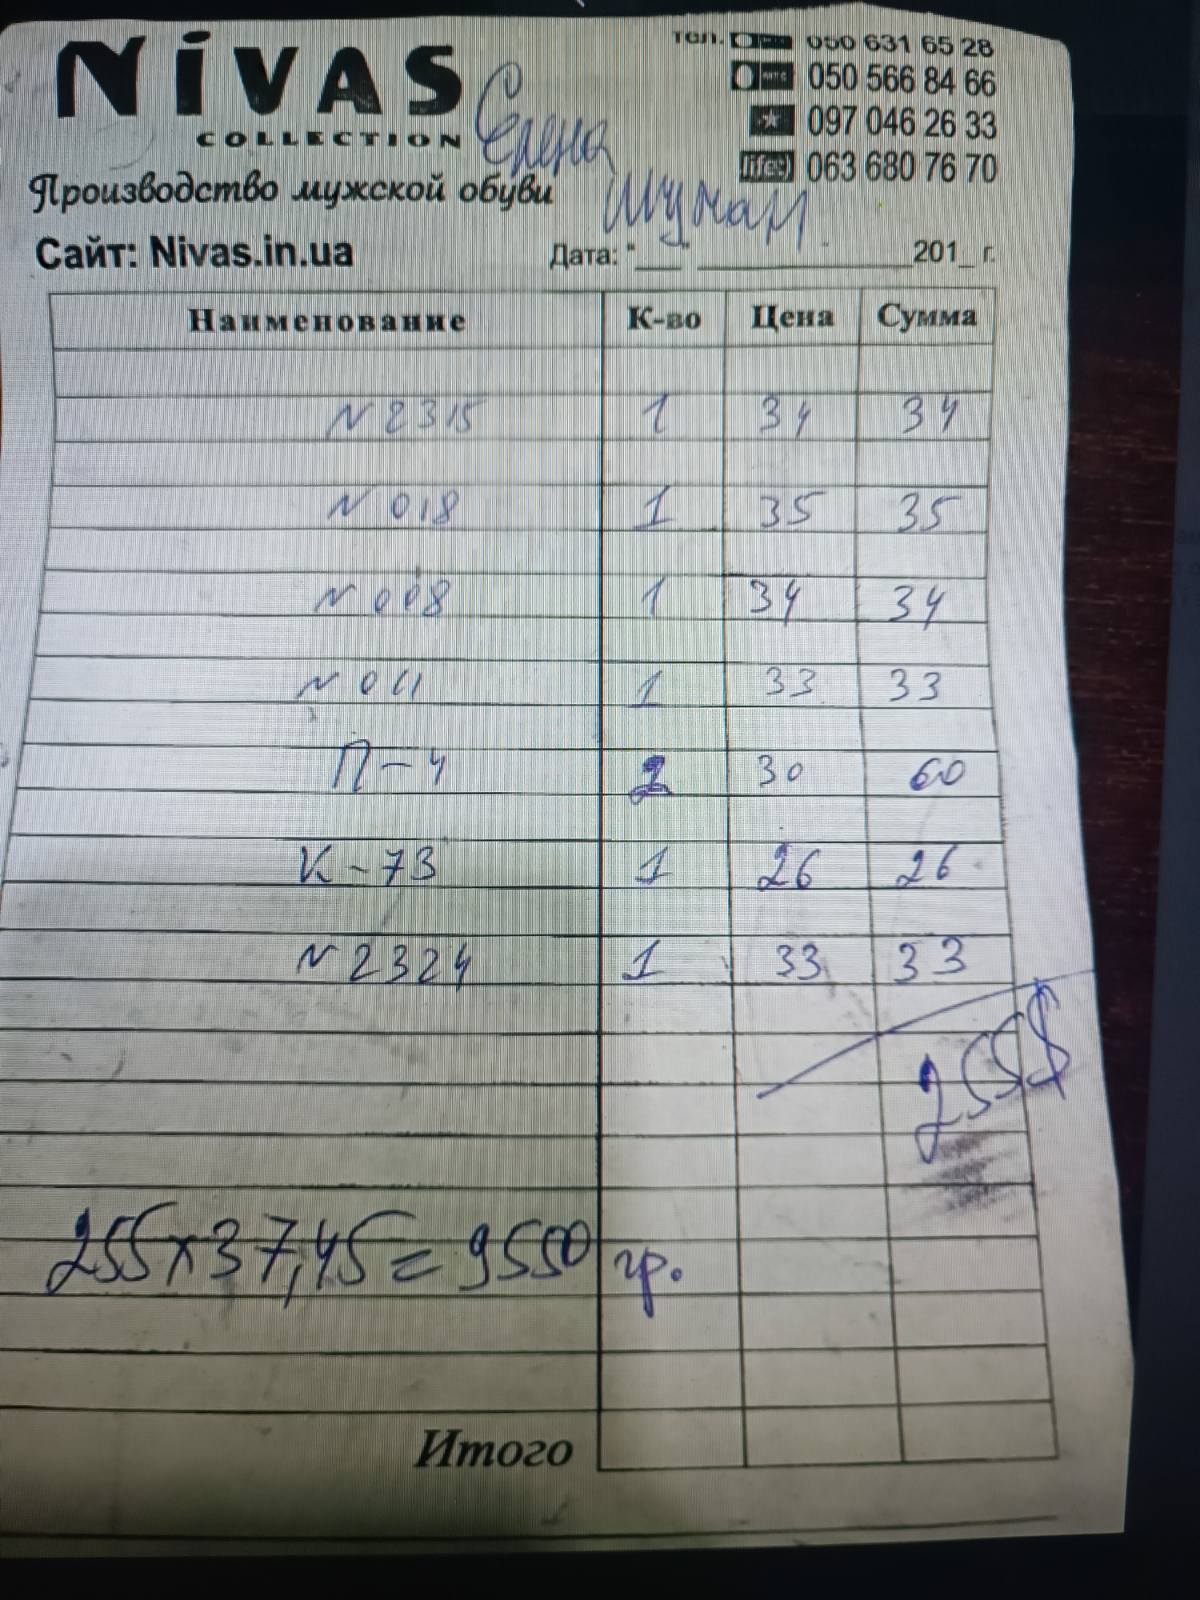 NiVAS
COLLECTION
Производство мужской обуви
Сайт: Nivas.in.ua
тел. 050 631 65 28
мтс 050 566 84 66
097 046 26 33
life:) 063 680 76 70
Елена
Шуман
Дата: "___" ____________201_ г.
Наименование К-во Цена Сумма
N 2315 1 34 34
N 018 1 35 35
N 008 1 34 34
N 011 1 33 33
П-4 2 30 60
К-73 1 26 26
N 2324 1 33 33
255$
255x37,45=9550 гр.
Итого